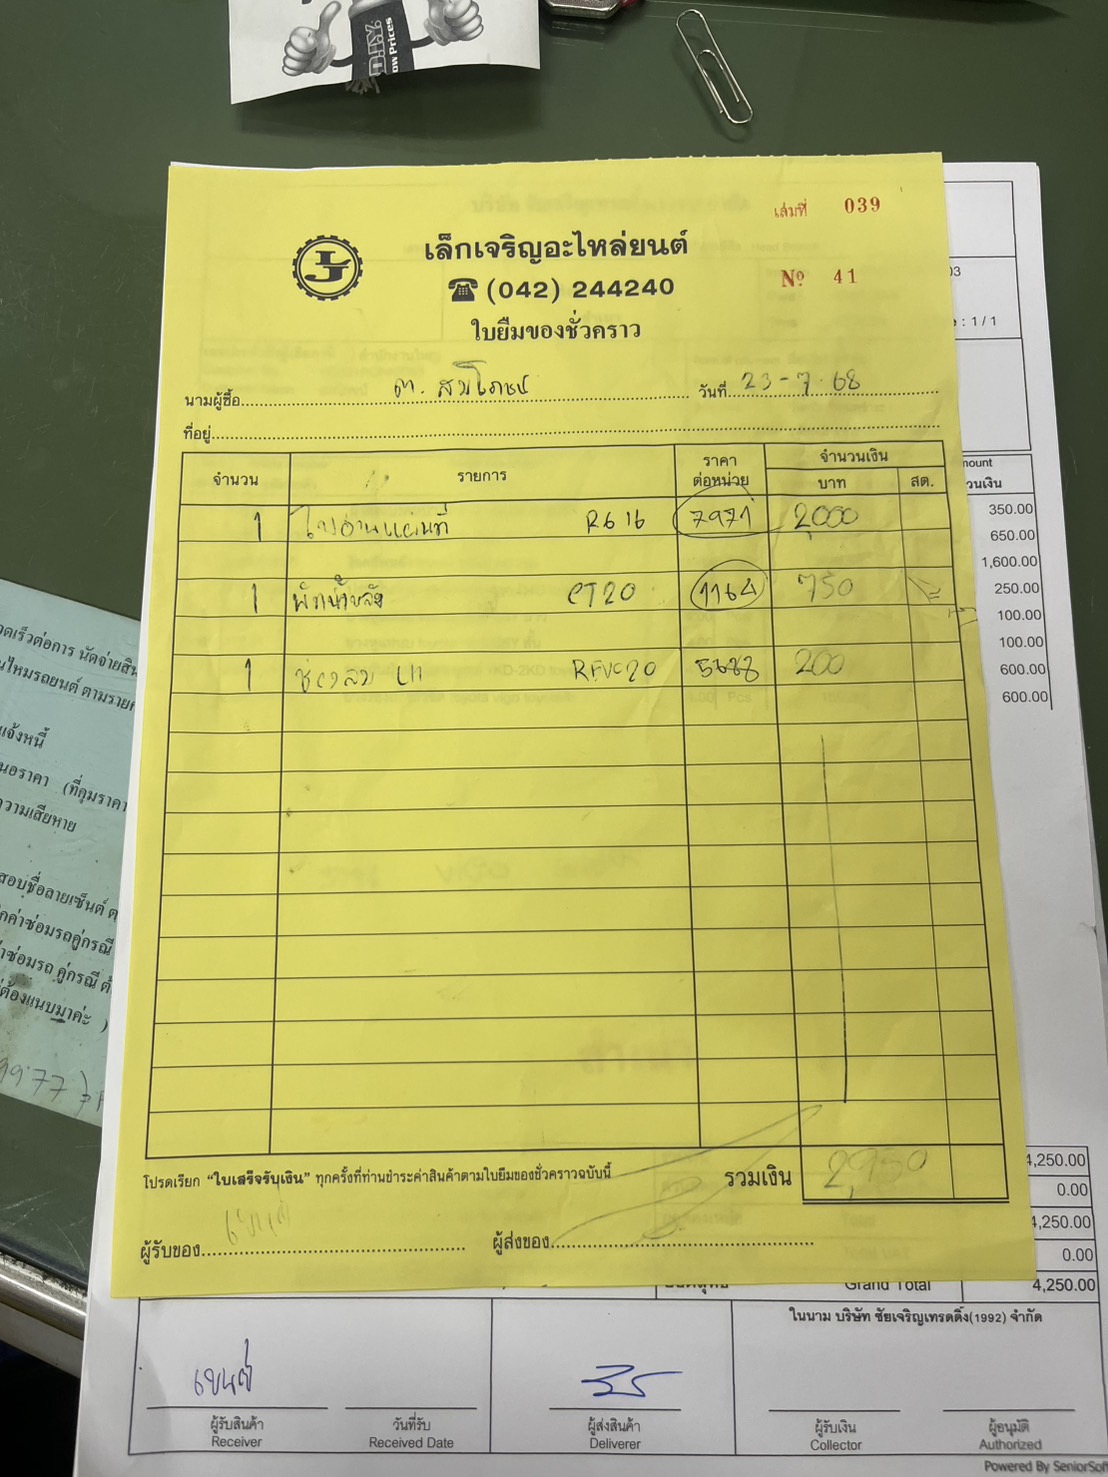 DIY
ow Prices
เล่มที่ 039
LJ
เล็กเจริญอะไหล่ยนต์
(042) 244240
Nº 41
ใบยืมของชั่วคราว
นามผู้ซื้อ วันที่ 23-7-68
ที่อยู่
จำนวน รายการ ราคา ต่อหน่วย จำนวนเงิน บาท สต.
1 R616 7971 2,000
1 CT20 1164 750
1 200
โปรดเรียก "ใบเสร็จรับเงิน" ทุกครั้งที่ท่านชำระค่าสินค้าตามใบยืมของชั่วคราวฉบับนี้ รวมเงิน 2,950
ผู้รับของ ผู้ส่งของ
: 1 / 1
mount
วนเงิน
350.00
650.00
1,600.00
250.00
100.00
100.00
600.00
600.00
4,250.00
0.00
4,250.00
0.00
Grand Total 4,250.00
ในนาม บริษัท ชัยเจริญเทรดดิ้ง(1992) จำกัด
ผู้รับสินค้า วันที่รับ ผู้ส่งสินค้า ผู้รับเงิน ผู้อนุมัติ
Receiver Received Date Deliverer Collector Authorized
Powered By SeniorSoft
วดเร็วต่อการ นัดจ่ายสิน
นไหมรถยนต์ ตามราย
แจ้งหนี้
นอราคา (ที่คุมราคา
วามเสียหาย
สอบชื่อลายเซ็นต์ ต
กค่าซ่อมรถคู่กรณี
่าซ่อมรถ คู่กรณี ต้
ต้องแนบมาค่ะ )